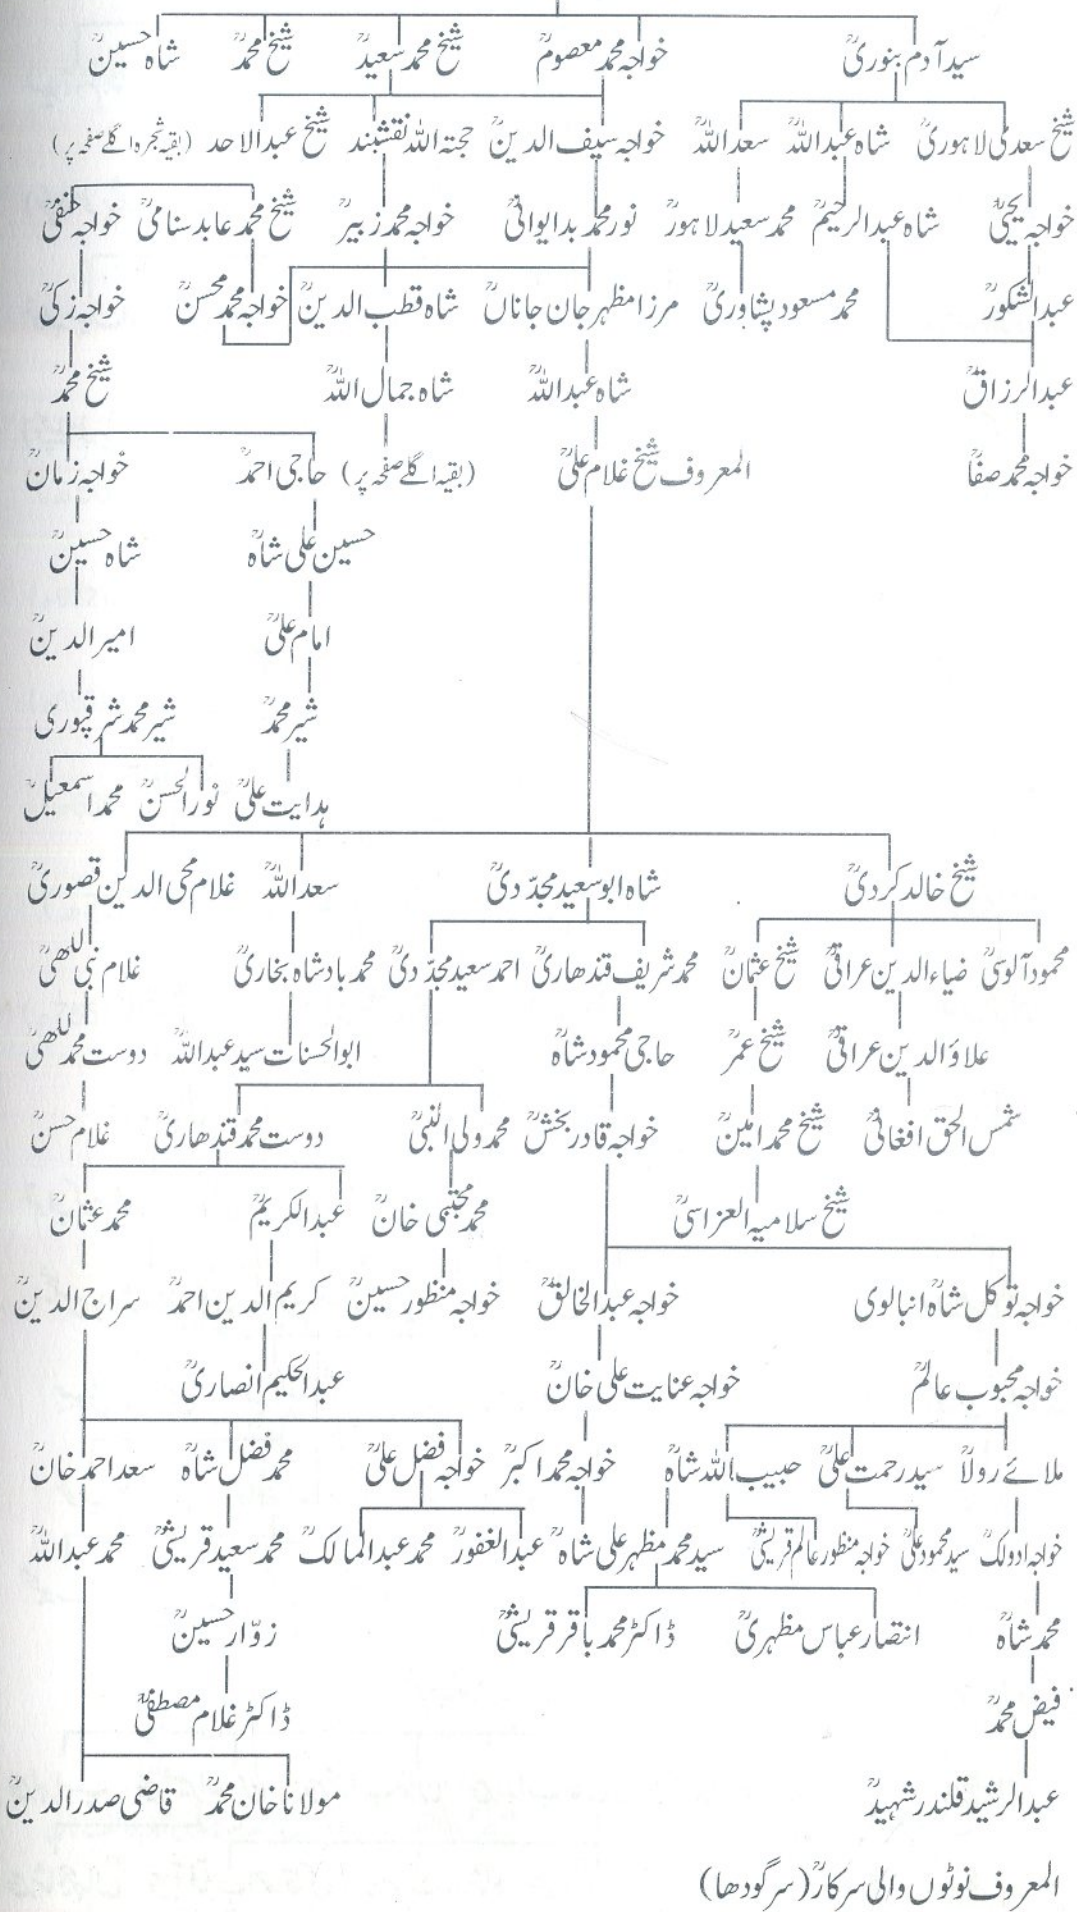 سید آدم بنوریؒ خواجہ محمد معصومؒ شیخ محمد سعیدؒ شیخ محمدؒ شاہ حسینؒ
شیخ سعدی لاہوریؒ شاہ عبداللہؒ سعد اللہؒ خواجہ سیف الدینؒ حجتہ اللہ نقشبند شیخ عبدالاحدؒ (بقیہ شجرہ اگلے صفحہ پر)
خواجہ یحییٰؒ شاہ عبدالرحیمؒ محمد سعید لاہورؒ نور محمد بدایوانیؒ خواجہ محمد زبیرؒ شیخ محمد عابد سنامیؒ خواجہ حنفیؒ
عبدالشکورؒ محمد مسعود پشاوریؒ مرزا مظہر جان جاناںؒ شاہ قطب الدینؒ خواجہ محمد محسنؒ خواجہ زکیؒ
عبدالرزاقؒ شاہ عبداللہؒ شاہ جمال اللہؒ شیخ محمدؒ
خواجہ محمد صفاؒ المعروف شیخ غلام علیؒ (بقیہ اگلے صفحہ پر) حاجی احمدؒ خواجہ زمانؒ
حسین علی شاہؒ شاہ حسینؒ
امام علیؒ امیر الدینؒ
شیر محمدؒ شیر محمد شرقپوری
ہدایت علیؒ نور الحسنؒ محمد اسمعیلؒ
شیخ خالد کردیؒ شاہ ابو سعید مجدّدیؒ سعد اللہؒ غلام محی الدین قصوریؒ
محمود آلوسیؒ ضیاء الدین عراقیؒ شیخ عثمانؒ محمد شریف قندھاریؒ احمد سعید مجدّدیؒ محمد بادشاہ بخاریؒ غلام نبی للھیؒ
علاؤ الدین عراقیؒ شیخ عمرؒ حاجی محمود شاہؒ ابو الحسنات سید عبداللہؒ دوست محمد للھیؒ
شمس الحق افغانیؒ شیخ محمد امینؒ خواجہ قادر بخشؒ محمد ولی النبیؒ دوست محمد قندھاریؒ غلام حسنؒ
شیخ سلامیہ العزاسیؒ محمد مجتبیٰ خانؒ عبدالکریمؒ محمد عثمانؒ
خواجہ توکل شاہؒ انبالوی خواجہ عبدالخالقؒ خواجہ منظور حسینؒ کریم الدین احمدؒ سراج الدینؒ
خواجہ محبوب عالمؒ خواجہ عنایت علی خانؒ عبدالحکیم انصاریؒ
ملائے رولاؒ سید رحمت علیؒ حبیب اللہ شاہؒ خواجہ محمد اکبرؒ خواجہ فضل علیؒ محمد فضل شاہؒ سعد احمد خانؒ
خواجہ ادولکؒ سید محمود علیؒ خواجہ منظور عالم قریشیؒ سید محمد مظہر علی شاہؒ عبدالغفورؒ محمد عبدالمالکؒ محمد سعید قریشیؒ محمد عبداللہؒ
محمد شاہؒ انتصار عباس مظہریؒ ڈاکٹر محمد باقر قریشیؒ زوّار حسینؒ
فیض محمدؒ ڈاکٹر غلام مصطفیٰؒ
عبدالرشید قلندر شہیدؒ مولانا خان محمدؒ قاضی صدر الدینؒ
المعروف نوٹوں والی سرکارؒ (سرگودھا)